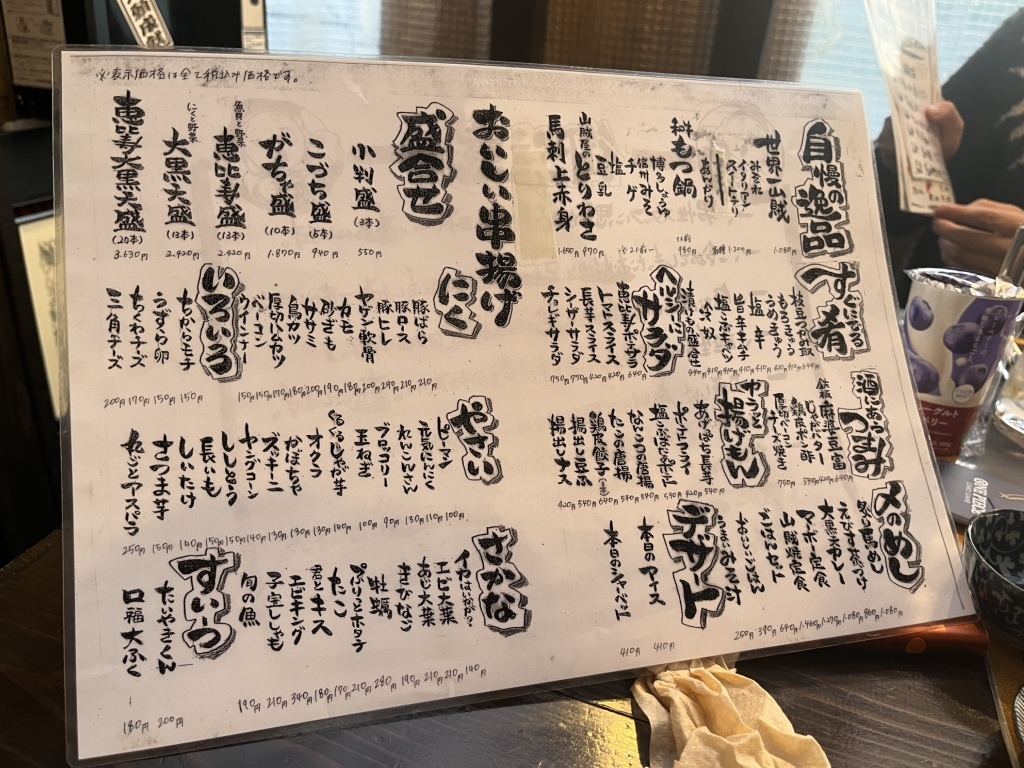 ※表示価格は全て税込み価格です。
自慢の逸品
世界一山賊
1.080円
料もつ鍋
博多しょうゆ
信州みそ
チゲ
塩
豆乳
1人前
980円
山賊屋のとりわさ
970円
馬刺上赤身
1.650円
すぐにでる肴
枝豆つかみ取
もろきゅう
うめきゅう
塩辛
旨辛キムチ
塩こぶキャベツ
冷奴
漬けもの盛合せ
ヘルシーにサラダ
恵比寿ボーサラダ
640円
トマトスライス
420円
長芋スライス
420円
シーザーサラダ
750円
チョレギサラダ
750円
酒にあうつまみ
鉄板麻婆豆富
じゃがバター
鶏皮ポン酢
厚切ベーコン
チーズ焼き
カラッと揚げもん
あげぽち長芋
ポテトフライ
なんこつの唐揚
たこの唐揚
鶏皮餃子
揚出し豆ふ
揚出しナス
〆のめし
炙り馬めし
えびす茶づけ
大黒天カレー
マーボー定食
山賊焼定食
ごはんセット
おいしいごはん
うまいみそ汁
1.080円
860円
1.080円
1.270円
1.460円
640円
390円
250円
デザート
本日のアイス
410円
本日のシャーベット
410円
おいしい串揚げ
盛合せ
小判盛(3本)
550円
こづち盛(5本)
940円
がちゃ盛(10本)
1.870円
魚貝と野菜
恵比寿盛(13本)
2.420円
にくと野菜
大黒天盛(13本)
2.420円
恵比寿大黒天盛(20本)
3.630円
にく
豚ばら
210円
豚ロース
210円
豚ヒレ
240円
ヤゲン軟骨
200円
カモ
180円
砂ぎも
190円
ササミ
200円
鳥カツ
180円
厚切ハムカツ
170円
ベーコン
150円
ウインナー
150円
いろいろ
ちからモチ
150円
うずら卵
150円
ちくわチーズ
170円
三角チーズ
200円
やさい
ピーマン
100円
元気にんにく
110円
れんこんさん
130円
ブロッコリー
90円
玉ねぎ
100円
くるくるじゃが芋
140円
オクラ
130円
かぼちゃ
130円
ズッキーニ
130円
ヤングコーン
140円
ししとう
150円
長いも
150円
しいたけ
160円
さつま芋
150円
丸ごとアスパラ
250円
さかな
イカはいかが?
140円
エビ大葉
210円
あじ大葉
210円
きびなご
190円
牡蠣
280円
ぷりっとホタテ
210円
たこ
170円
君とキス
180円
エビキング
340円
子宝ししゃも
210円
旬の魚
190円
すいーつ
たいやきくん
200円
口福大ふく
180円